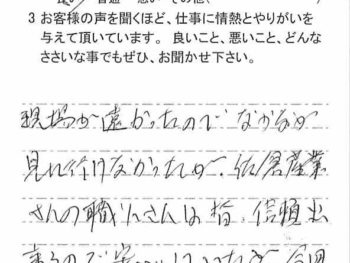 3 お客様の声を聞くほど、仕事に情熱とやりがいを
与えて頂いています。 良いこと、悪いこと、どんな
ささいな事でもぜひ、お聞かせ下さい。
現場が遠かったので なかなか
見に行けなかったが、佐倉産業
さんの職人さんは皆、信頼出